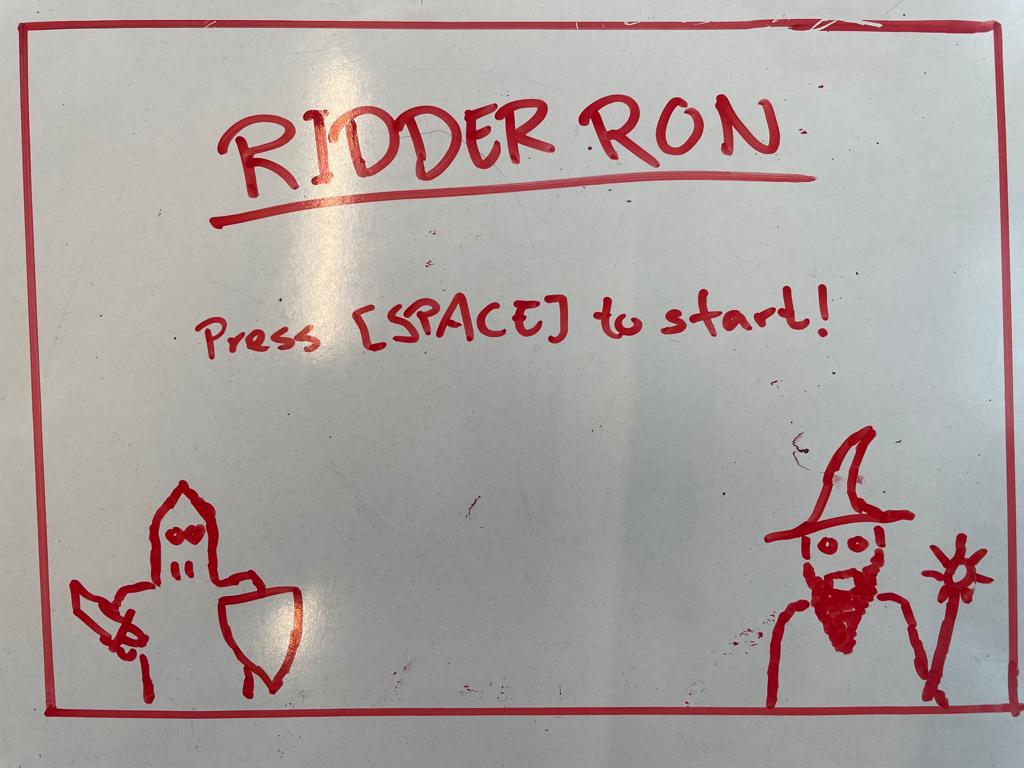 RIDDER RON
Press [SPACE] to start!